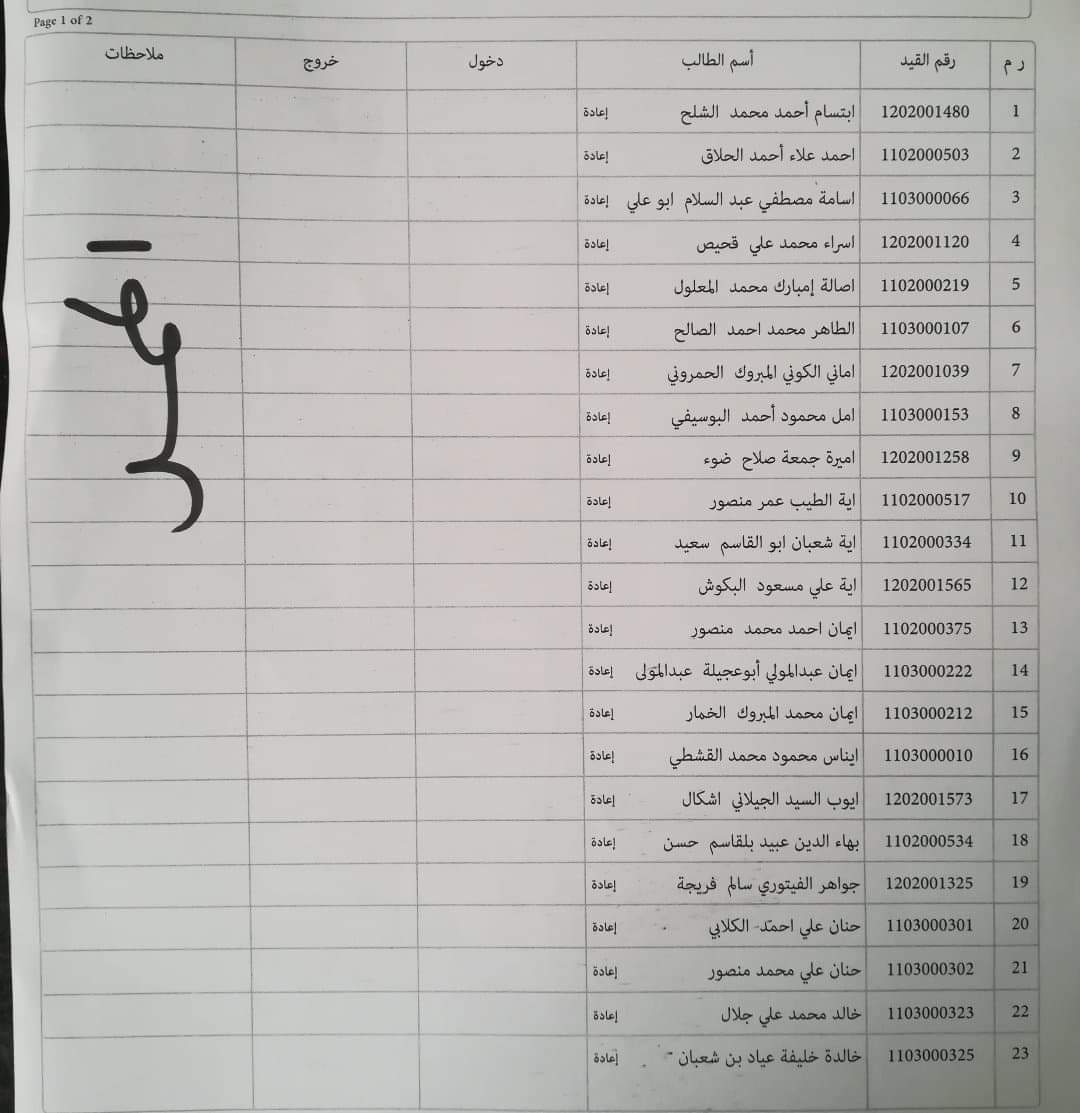 Page 1 of 2
ر م رقم القيد أسم الطالب دخول خروج ملاحظات
1 1202001480 ابتسام أحمد محمد الشلح إعادة
2 1102000503 احمد علاء أحمد الحلاق إعادة
3 1103000066 اسامة مصطفي عبد السلام ابو علي إعادة
4 1202001120 اسراء محمد علي قحيص إعادة
5 1102000219 اصالة إمبارك محمد المعلول إعادة
6 1103000107 الطاهر محمد احمد الصالح إعادة
7 1202001039 اماني الكوني المبروك الحمروني إعادة
8 1103000153 امل محمود أحمد البوسيفي إعادة
9 1202001258 اميرة جمعة صلاح ضوء إعادة
10 1102000517 اية الطيب عمر منصور إعادة
11 1102000334 اية شعبان ابو القاسم سعيد إعادة
12 1202001565 اية علي مسعود البكوش إعادة
13 1102000375 ايمان احمد محمد منصور إعادة
14 1103000222 ايمان عبدالمولي أبوعجيلة عبدالمولى إعادة
15 1103000212 ايمان محمد المبروك الخمار إعادة
16 1103000010 ايناس محمود محمد القشطي إعادة
17 1202001573 ايوب السيد الجيلاني اشكال إعادة
18 1102000534 بهاء الدين عبيد بلقاسم حسن إعادة
19 1202001325 جواهر الفيتوري سالم فريجة إعادة
20 1103000301 حنان علي احمد الكلابي إعادة
21 1103000302 حنان علي محمد منصور إعادة
22 1103000323 خالد محمد علي جلال إعادة
23 1103000325 خالدة خليفة عياد بن شعبان إعادة